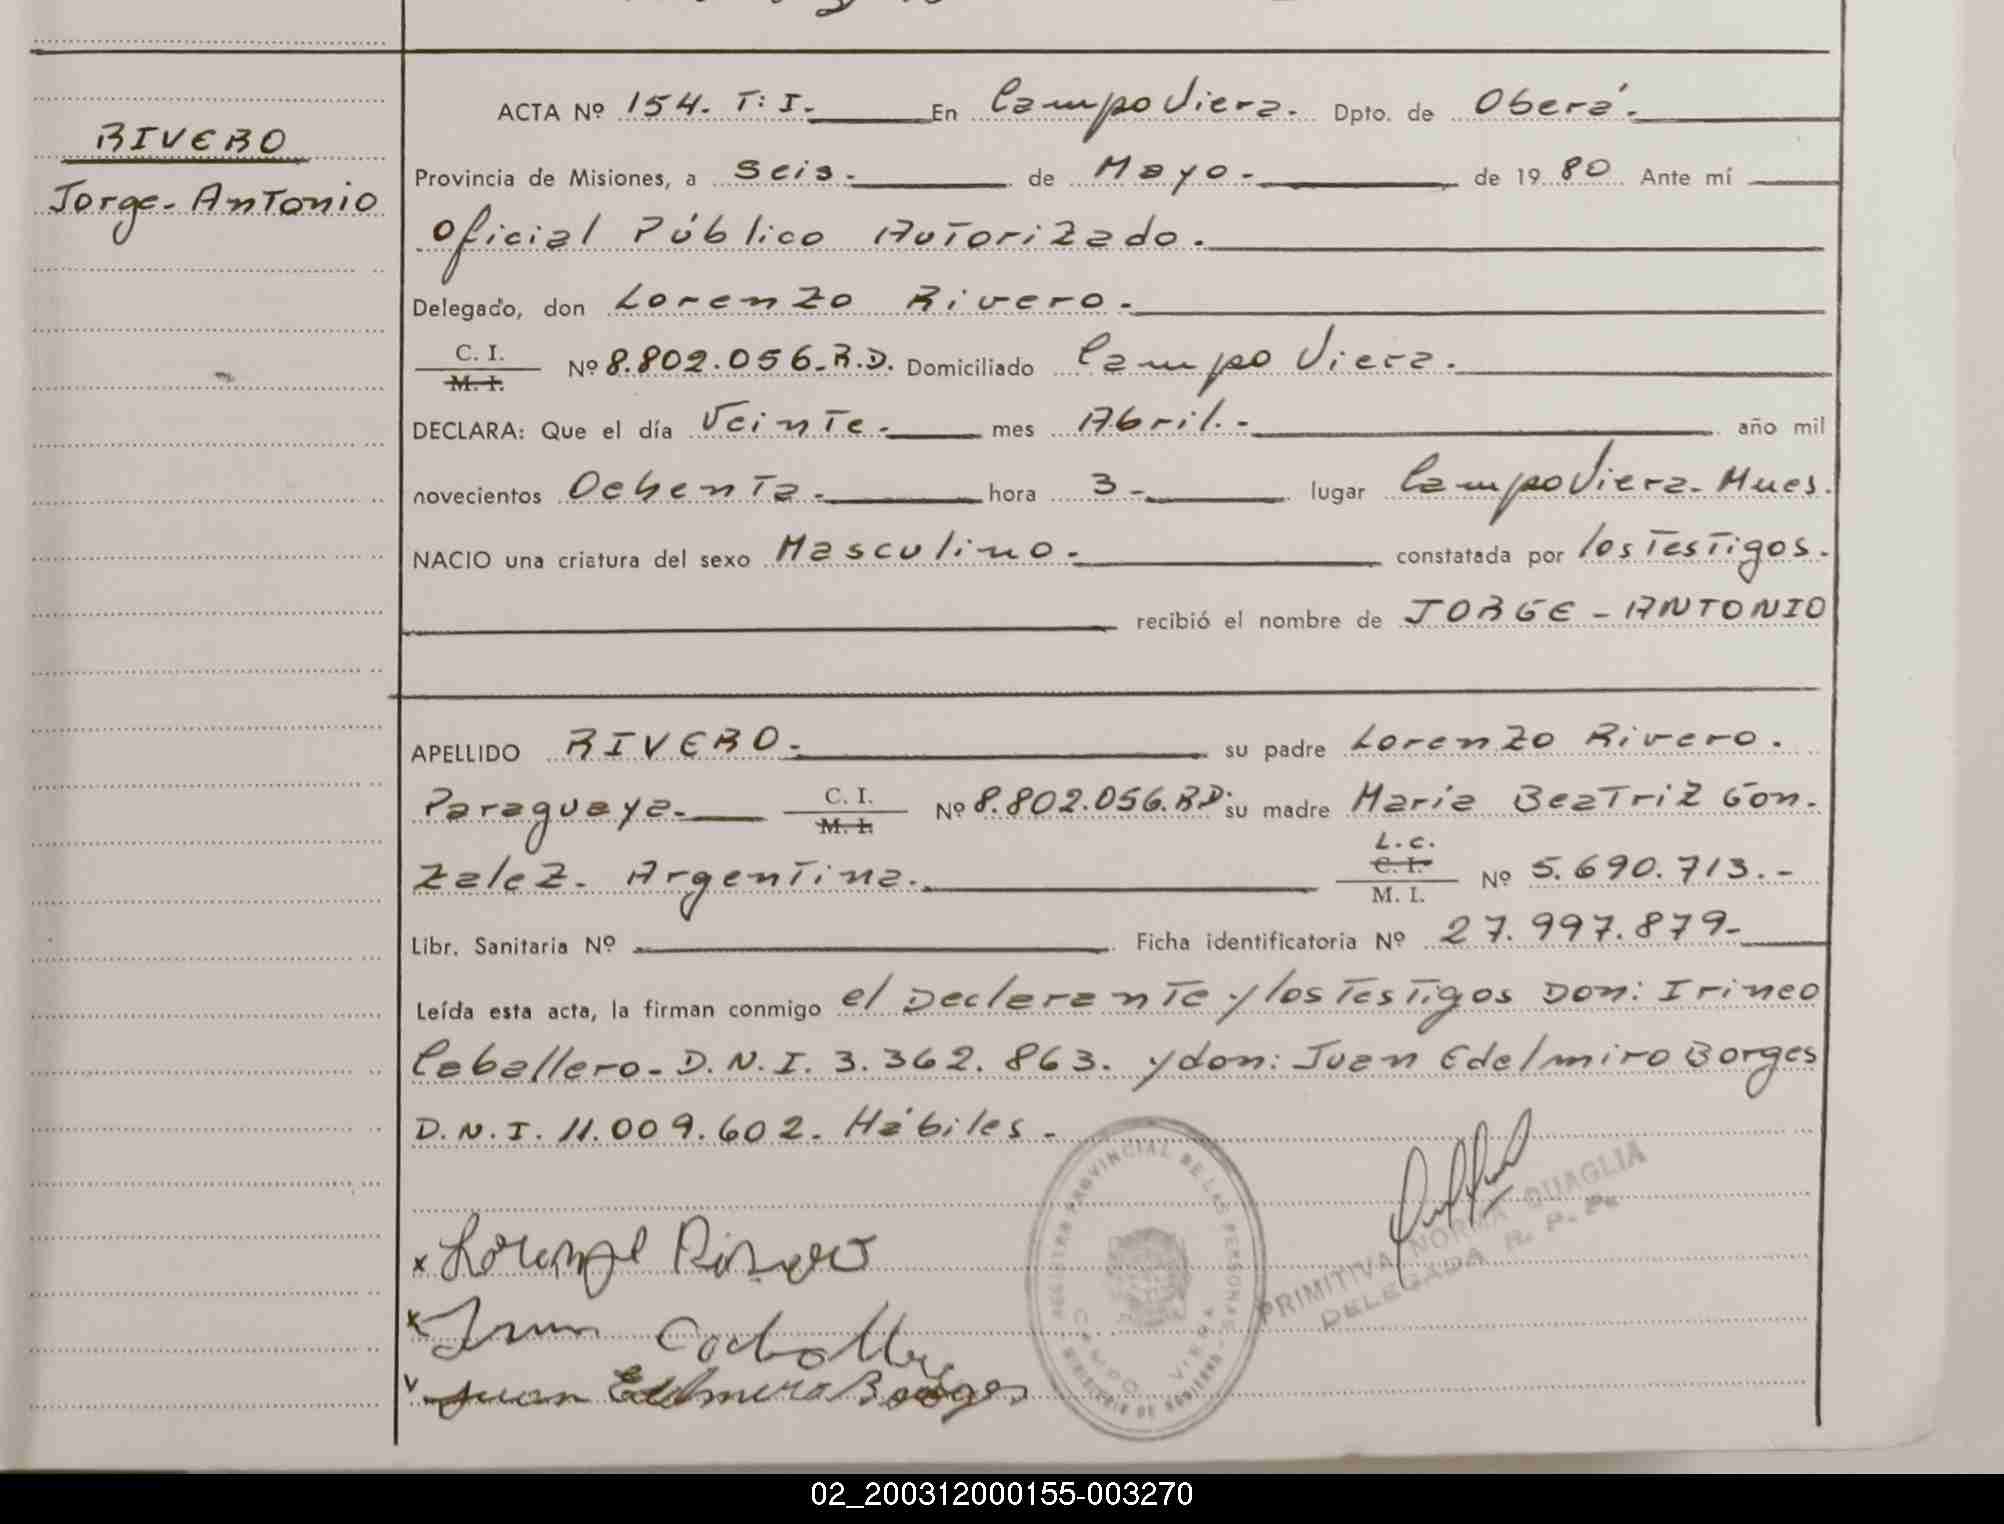 RIVERO
Jorge-Antonio
ACTA Nº 154. T: I. En Campo Viera. Dpto. de Oberá.
Provincia de Misiones, a seis. de Mayo. de 1980 Ante mí
Oficial Público Autorizado.
Delegado, don Lorenzo Rivero.
C. I.
M. I. Nº 8.802.056.R.D. Domiciliado Campo Viera.
DECLARA: Que el día Veinte. mes Abril. año mil
novecientos Ochenta. hora 3 lugar Campo Viera. Mnes.
NACIO una criatura del sexo Masculino. constatada por los Testigos.
recibió el nombre de JORGE - ANTONIO
APELLIDO RIVERO. su padre Lorenzo Rivero.
Paraguaya. C. I.
M. I. Nº 8.802.056.R.D. su madre Maria Beatriz Gon.
L.C.
zalez. Argentina. C. I.
M. I. Nº 5.690.713.-
Libr. Sanitaria Nº Ficha identificatoria Nº 27.997.879-
Leída esta acta, la firman conmigo el Declarante y los Testigos Don: Irineo
Caballero. D.N.I. 3.362.863. y don: Juan Edelmiro Borges
D.N.I. 11.009.602. Hábiles.
REGISTRO PROVINCIAL DE LAS PERSONAS
MINISTERIO DE GOBIERNO
CAMPO VIERA
PRIMITIVA NORMA QUAGLIA
DELEGADA R. P. P.
Rivero
Juan Edelmiro Borges
02_200312000155-003270